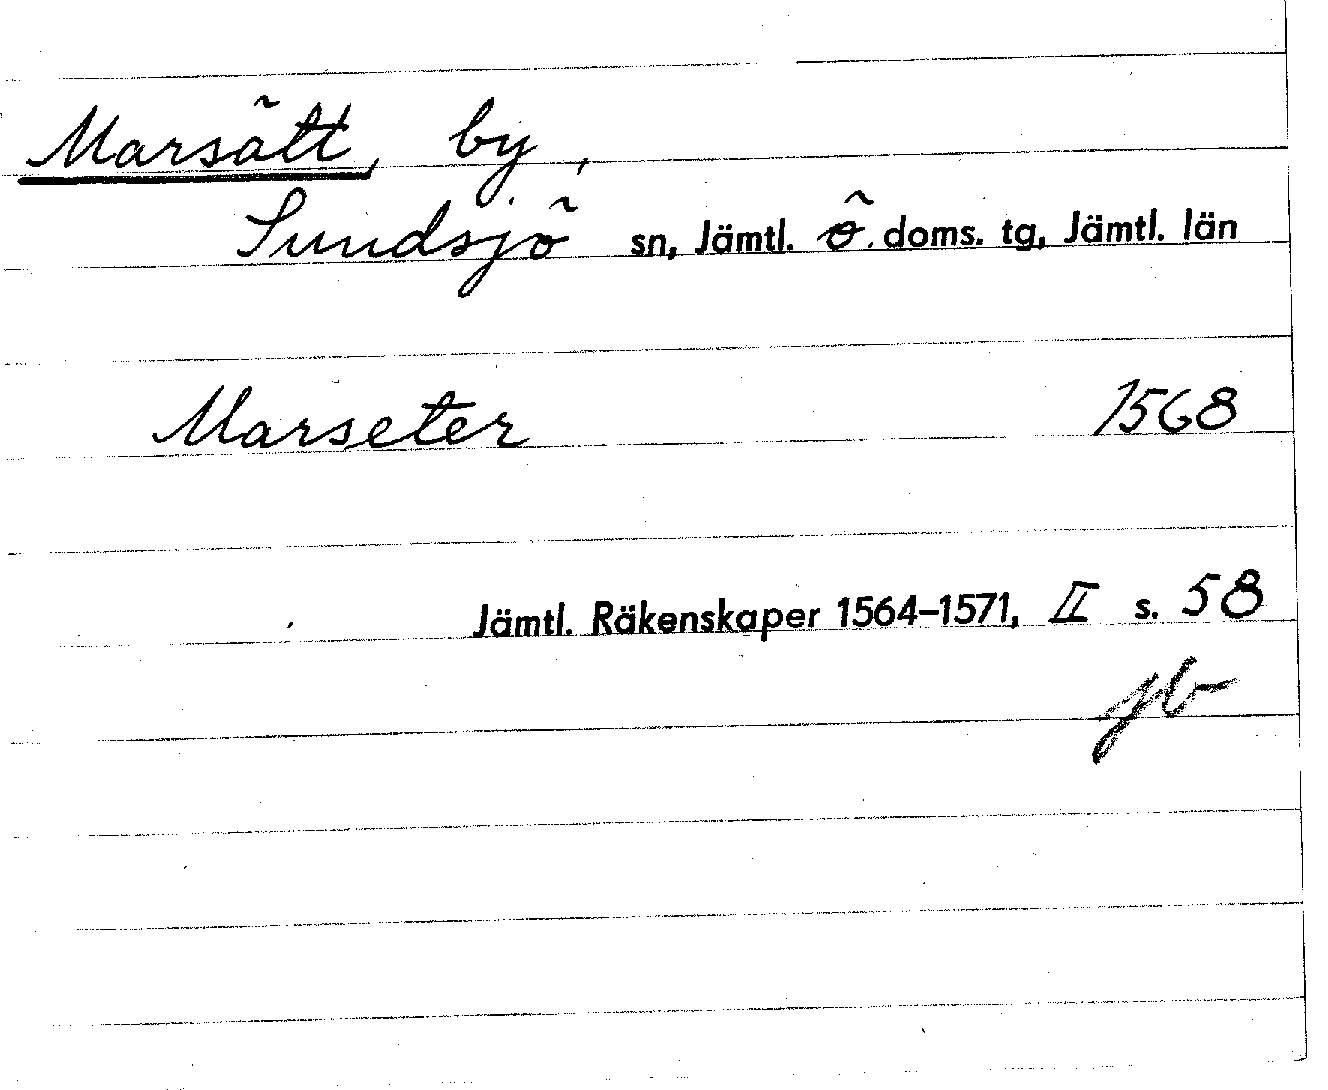 Marsätt, by,
Sundsjö sn, Jämtl. ö. doms. tg, Jämtl. län
Marseter 1568
Jämtl. Räkenskaper 1564-1571, II s. 58